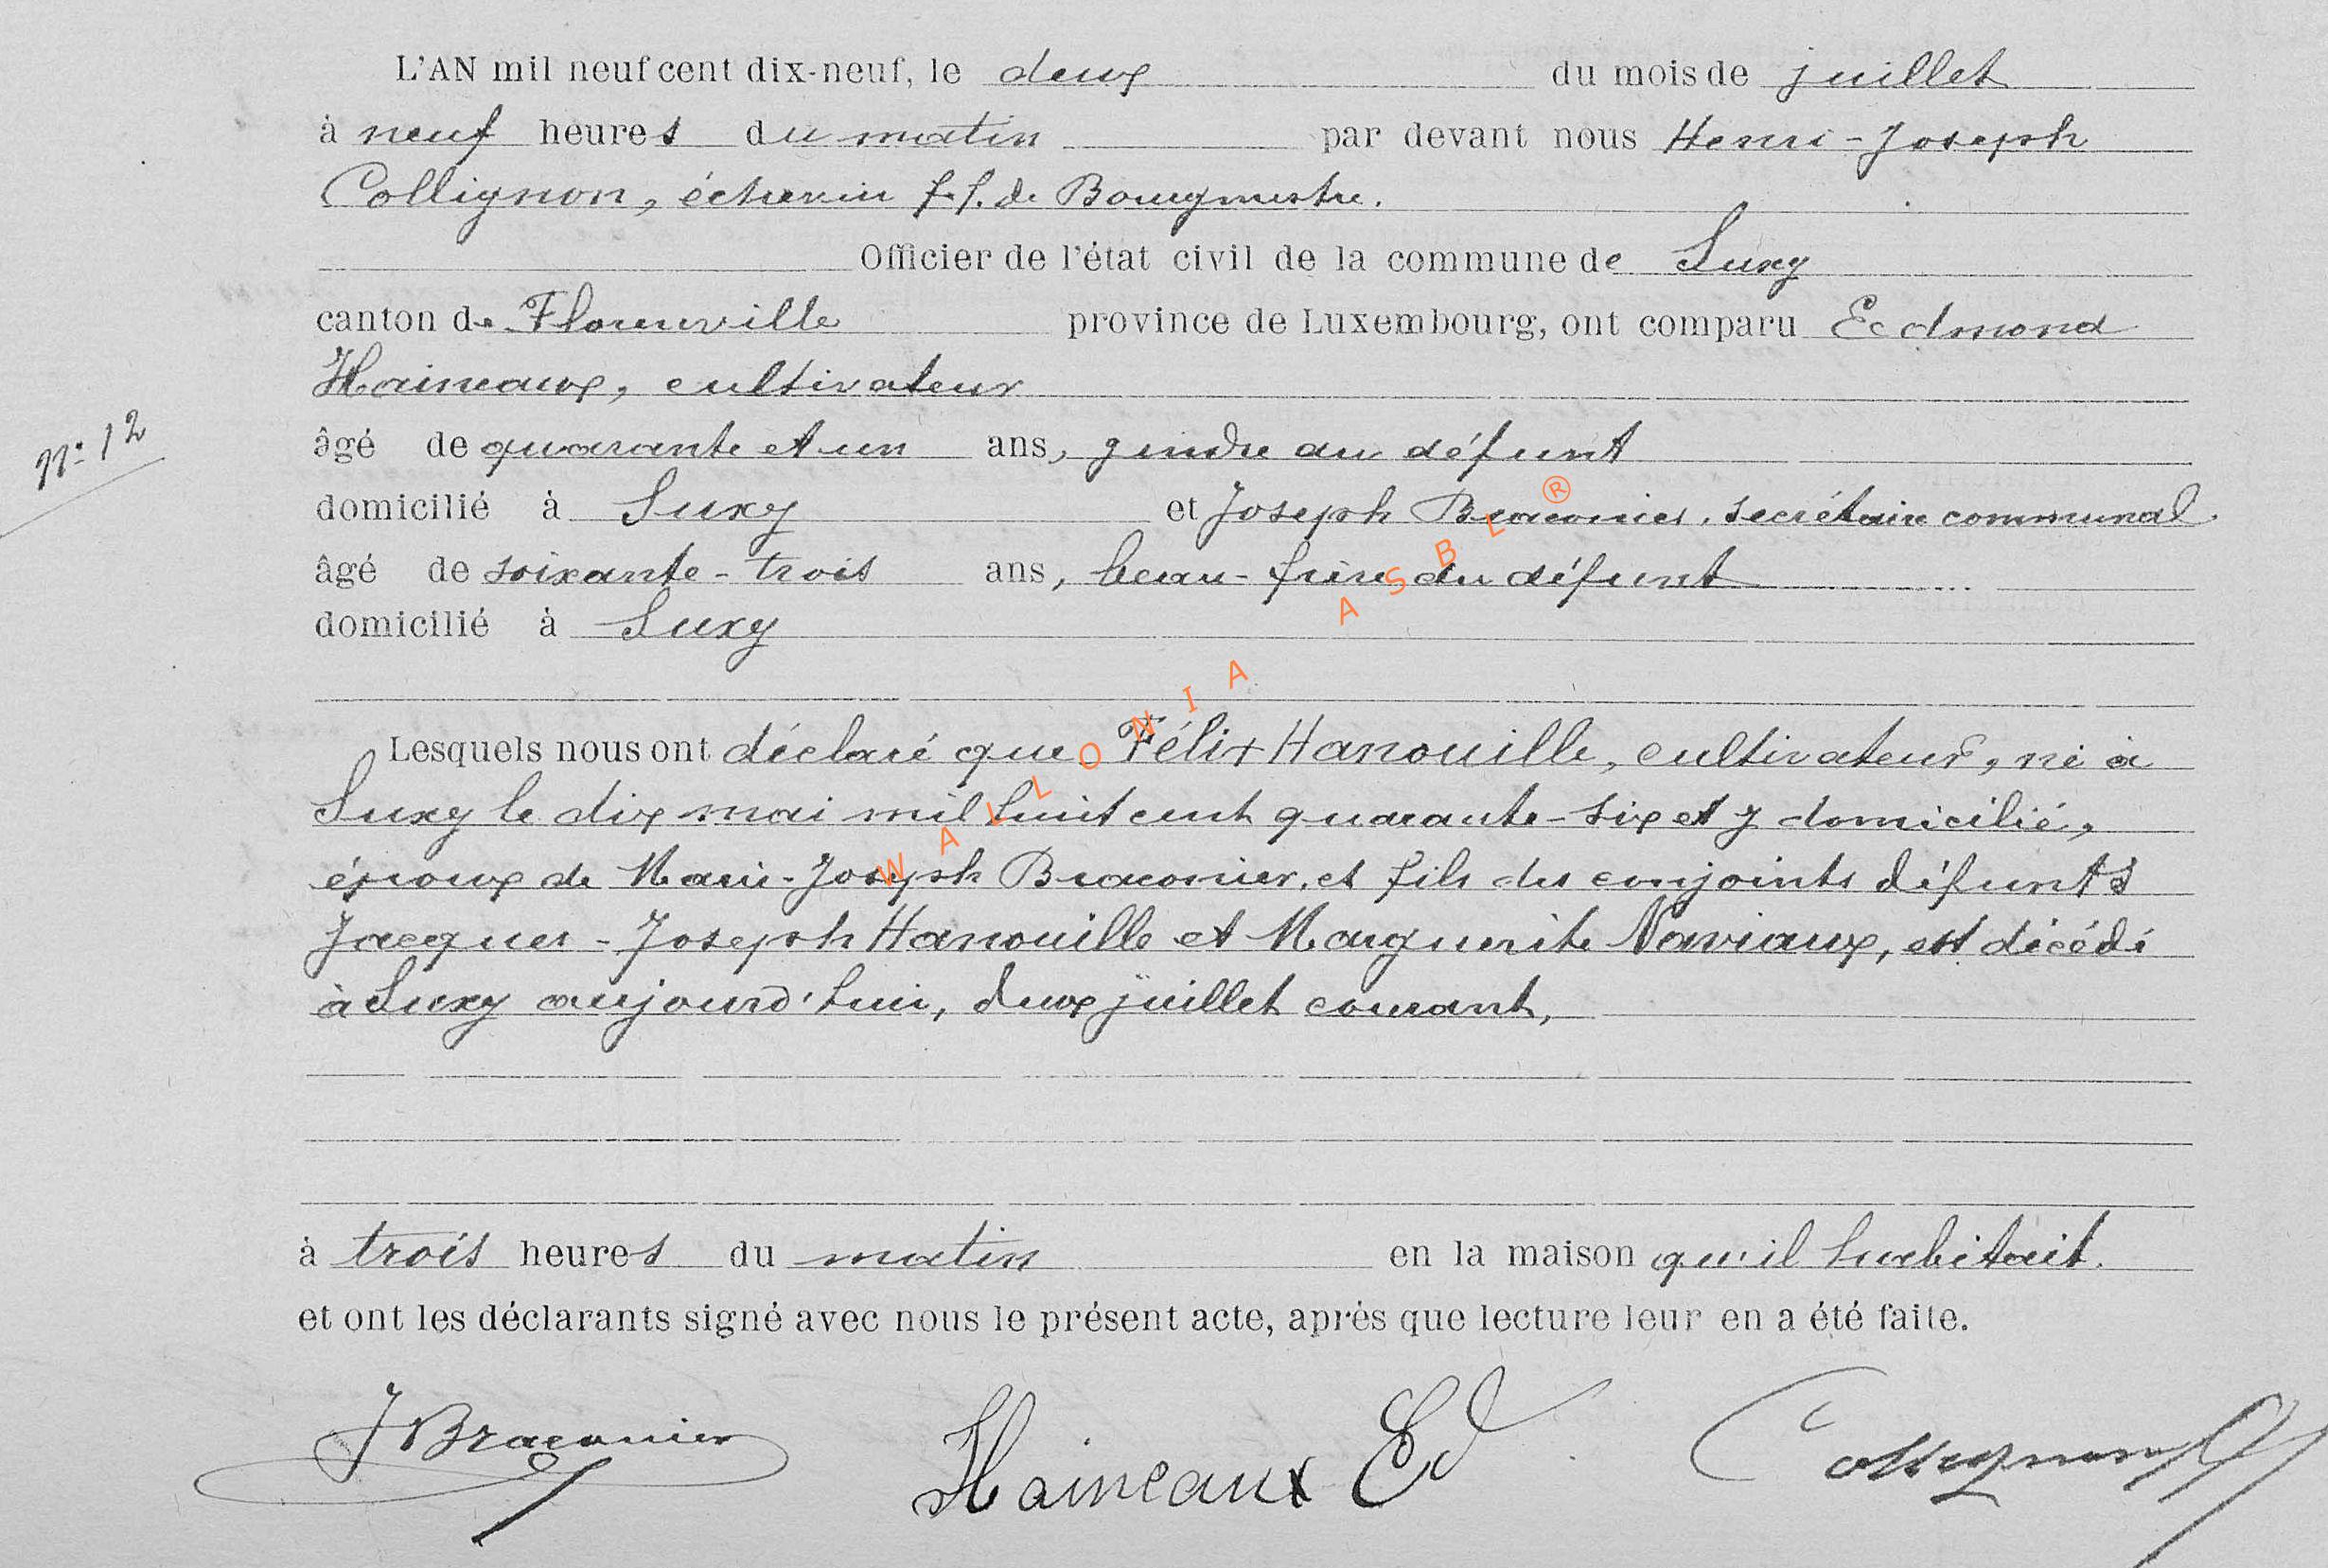 L'AN mil neuf cent dix-neuf, le deux du mois de juillet
à neuf heures du matin par devant nous Henri-Joseph
Collignon, échevin f.f. de Bourgmestre.
Officier de l'état civil de la commune de Suxy
canton de Florenville province de Luxembourg, ont comparu Edmond
Haineaux, cultivateur
nº 12
âgé de quarante et un ans, gendre au défunt
domicilié à Suxy et Joseph Braconier, secrétaire communal
âgé de soixante-trois ans, beau-frère du défunt
domicilié à Suxy
Lesquels nous ont déclaré que Félix Hanouille, cultivateur, né à
Suxy le dix mai mil huit cent quarante-six et y domicilié,
époux de Marie-Joseph Braconier, et fils des conjoints défunts
Jacques-Joseph Hanouille et Marguerite Naviaux, est décédé
à Suxy aujourd'hui, deux juillet courant,
à trois heures du matin en la maison qu'il habitait.
et ont les déclarants signé avec nous le présent acte, après que lecture leur en a été faite.
J Braconier Haineaux Ed Collignon
WALLONIA ASBL ®